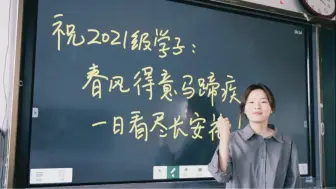 祝2021级学子：
春风得意马蹄疾
一日看尽长安